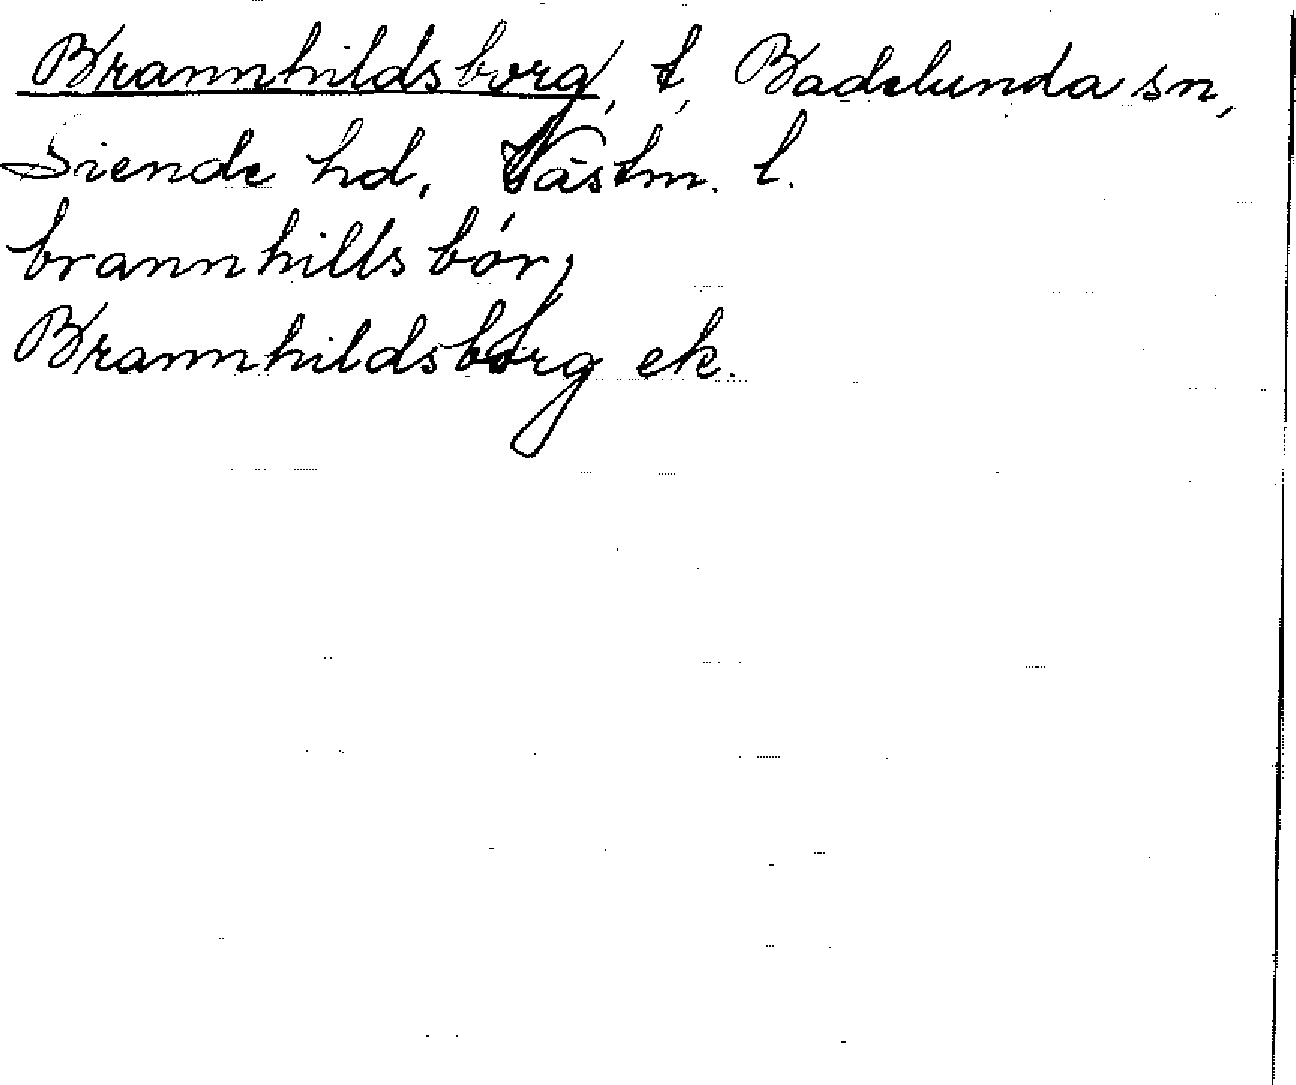 Brannhildsborg, t, Badelunda sn,
Siende hd, Västm. l.
brannhillsbór,
Brannhildsborg ek.